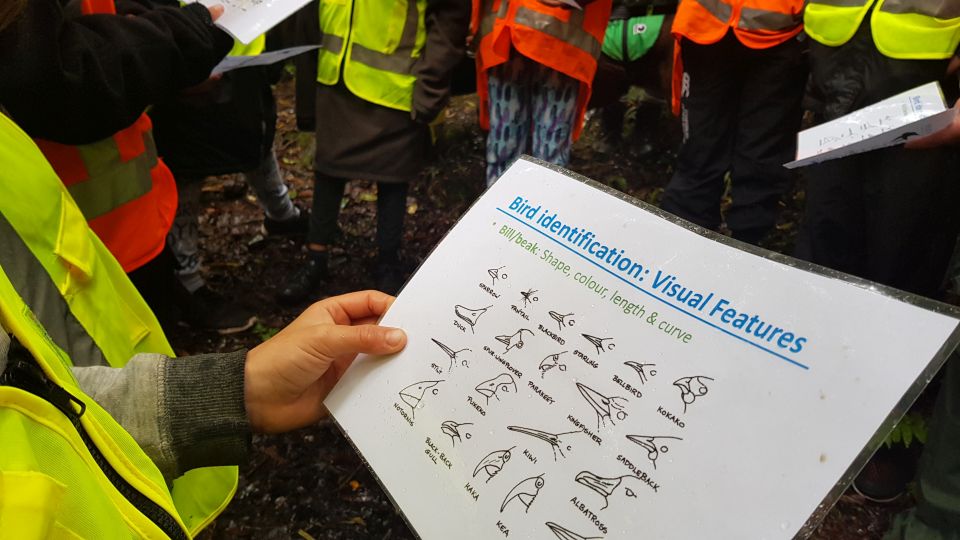 Bird identification: Visual Features
• Bill/beak: Shape, colour, length & curve
SPARROW
FANTAIL
BLACKBIRD
STARLING
BELLBIRD
KOKAKO
DUCK
SPUR-WING PLOVER
PARAKEET
KINGFISHER
SADDLEBACK
STILT
KIWI
ALBATROSS
NOTORNIS
BLACK-BACK
GULL
KAKA
KEA
Bird